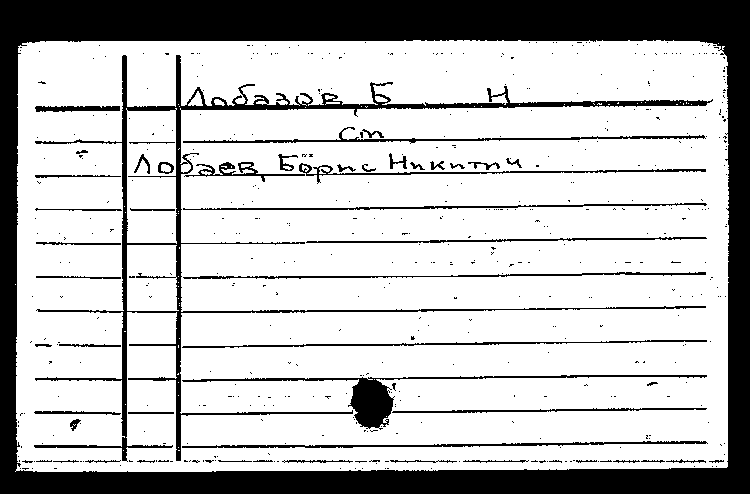 Лобазов, Б Н
см.
Лобаев, Борис Никитич.